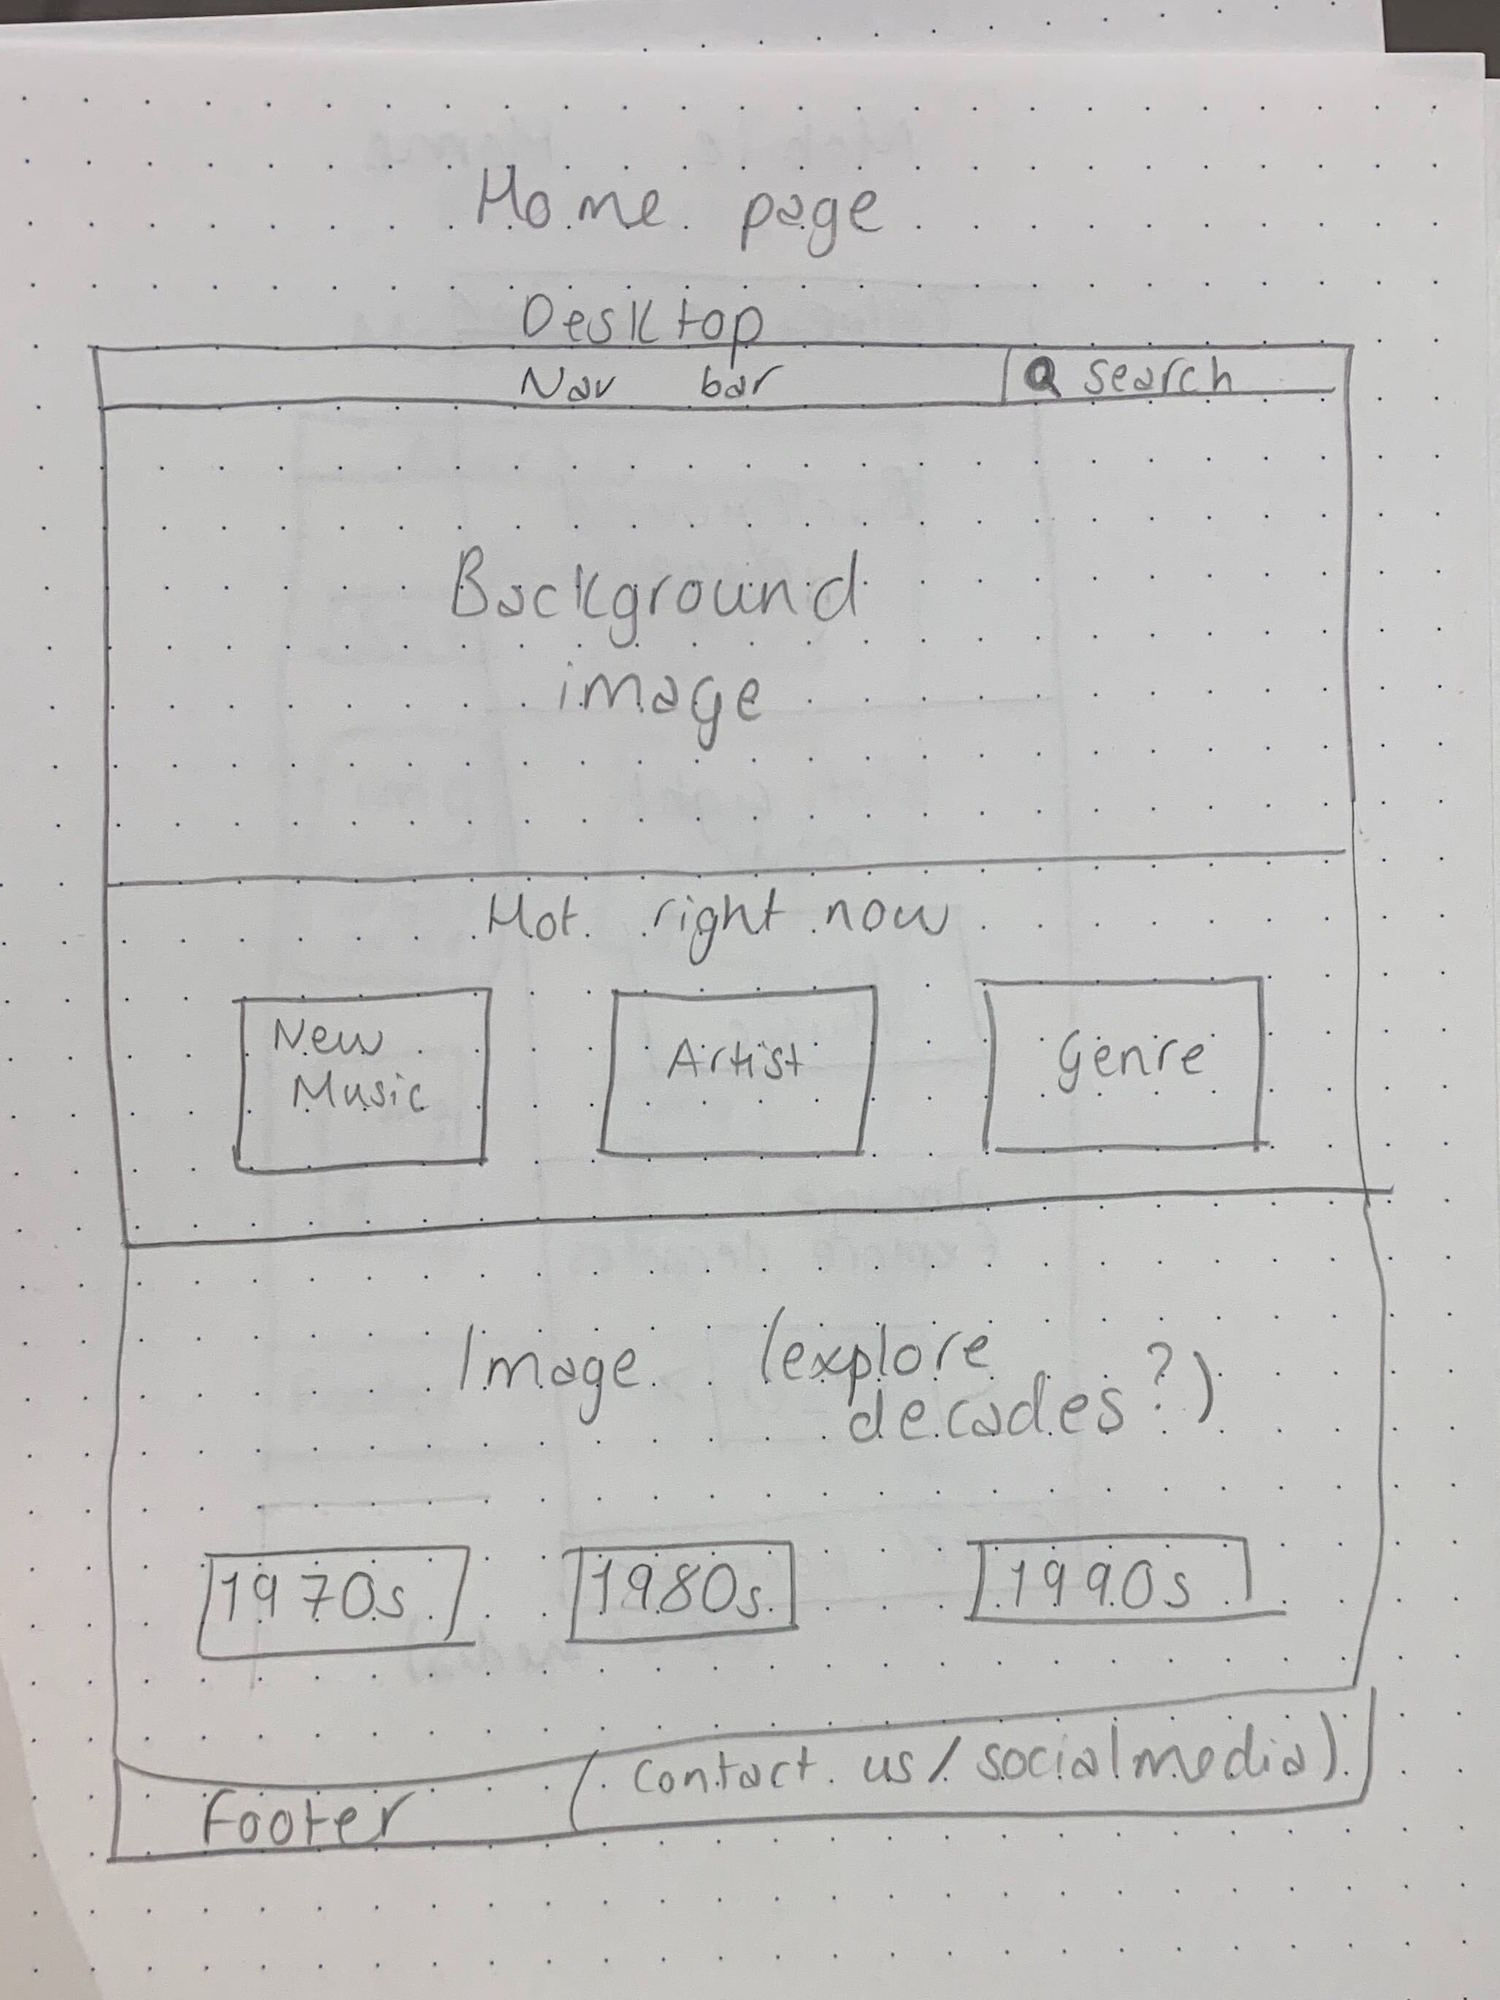 Home page
Desktop
Nav bar
search
Background
image
Hot right now
New
Music
Artist
Genre
Image (explore
decades?)
1970s
1980s
1990s
Footer (contact us/socialmedia)